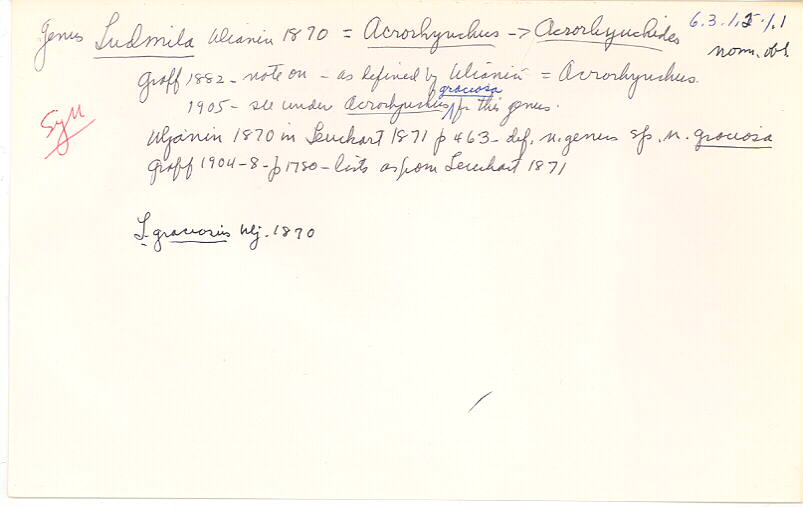 Genus Ludmila Ulianin 1870 = Acrorhynchus -> Acrorhynchides 6.3.1.5.1.1
nom. obl.
Graff 1882 - note on - as defined by Ulianin = Acrorhynchus.
1905 - see under Acrorhynchus graciosa for this genus.
Syn
Uljanin 1870 in Leuckart 1871 p 463 - def. n. genus sp. n. graciosa
Graff 1904-8 - p 1780 - lists as from Leuckart 1871
L. graciosus Ulj. 1870